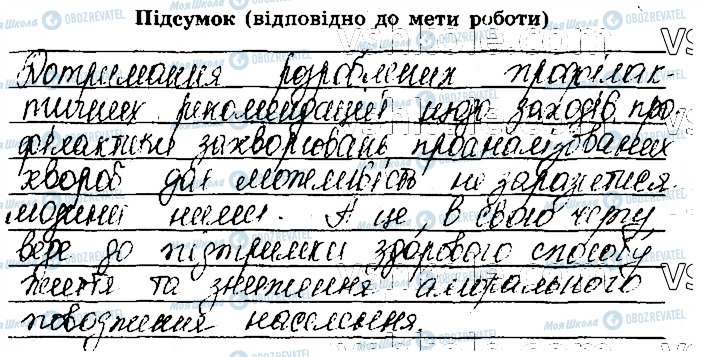 Підсумок (відповідно до мети роботи)
Дотримання розроблених профілак-
тичних рекомендацій щодо заходів про
філактики захворювань проаналізованих
хвороб дає можливість не заразитися
людині ними. А це, в свою чергу,
веде до підтримки здорового способу
життя та зниження аморального
поводження населення.